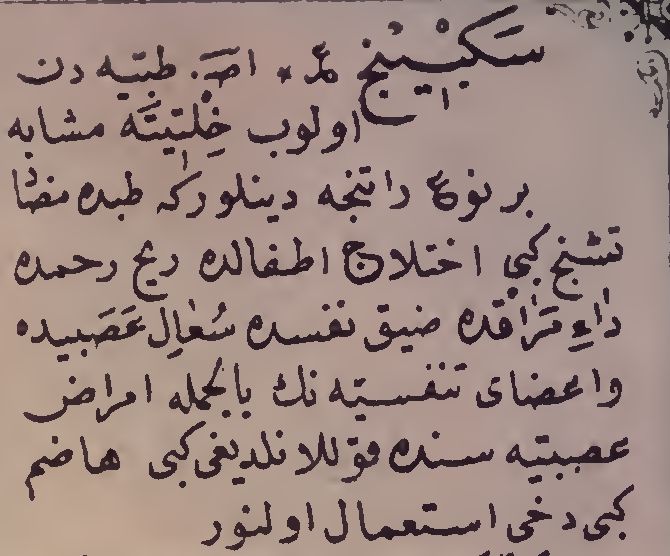 سَكبِينَج عر. اصـ. طبيه دن
اولوب حِلتِيتَه مشابه
بر نوع راتنجه دينلوركه طبده مضاد
تشنج كبى اختلاج اطفالده ريح رحمده
داءِ مَرَاقده ضيق نفسده سُعالِ عَصَبيده
واعضاى تنفسيه نك بالجمله امراض
عصبيه سنده قوللانلديغى كبى هاضم
كبى دخى استعمال اولنور